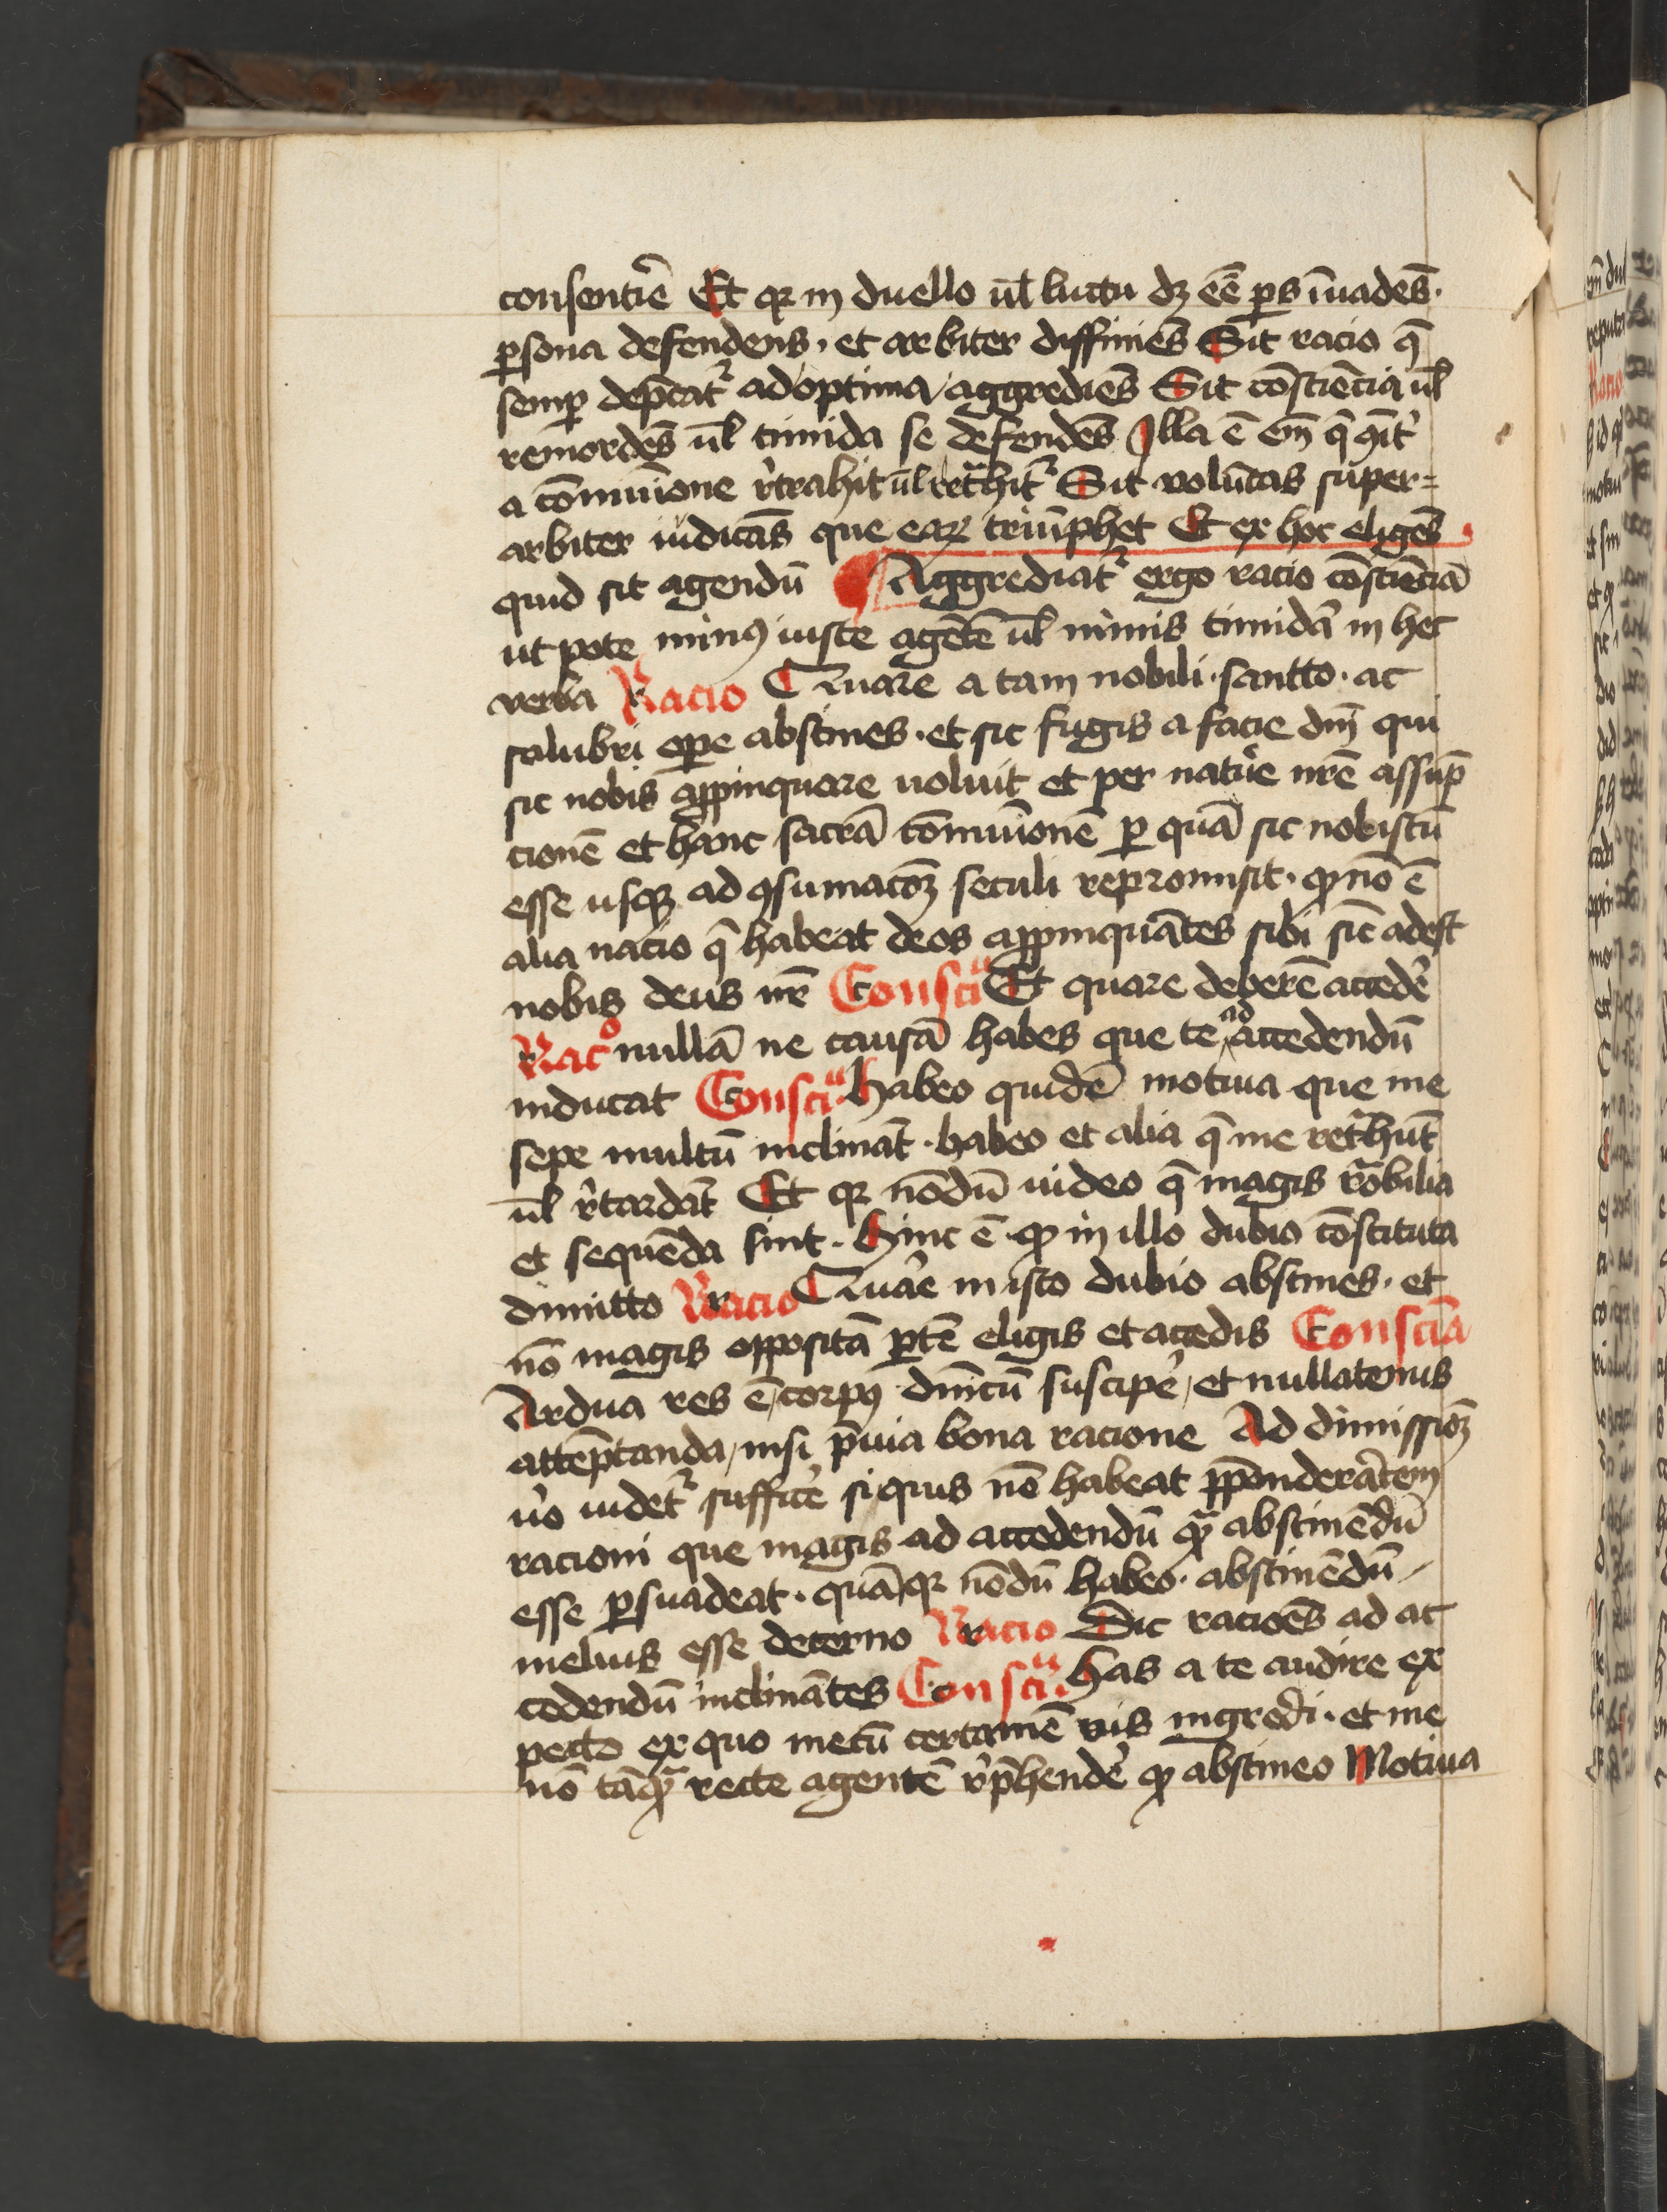 consentiē Et qr in duello ūl luctu dꝫ eē ꝑs īuadēs ·
ꝑsona defendens · et arbiter diffiniēs Sit racio q̄
semꝑ dep̄cat᷑ ad optima / aggrediēs Sit cōsciēcia ūl
remordēs ūl timida se defendēs Illa ē em̄ q̄
a cōmuīone r̓trahit ūl retͣhit᷑ Sit volūtas super=
arbiter iudicās que eaꝝ triūphet Et ex hoc eligēs
quid sit agendū ¶ Aggrediat᷑ ergo racio cōsciēciā
ut pote minꝰ iuste agētē ūl nimis timidā in hec
verba Racio Quare a tam nobili · sancto · ac
salubri oꝑe abstines · et sic fugis a facie dm̄ qui
sic nobis aꝓpinquare uoluit et per natur̓e nr̄e assūp
cionē et hanc sacrā cōmuīonē ꝑ quā sic nobiscū
esse usqꝫ ad ꝯsumacōꝫ seculi repromisit · ꝙ nō ē
alia nacio q̄ habeat deos aꝓpinquātes sibi sic̄ adest
nobis deus nr̄ Consciͣ Et quare deberē accedē
Racͦ nullā ne causā habes que te ad accedendū
inducat Consciͣ · habeo quidē motiua que me
sepe multū inclināt · habeo et alia q̄ me retͣhūt
ūl r̓tardāt Et qr nōdū uideo q̄ magis rͦabilia
et sequēda sint · Hinc ē ꝙ in illo dubio cōstituta
dimitto Racio Quar̓e in isto dubio abstines · et
nō magis oppositā ꝑtē eligis et accedis Consciā
Ardua res ē / corpꝰ dnicū suscipe̓ / et nullatenus
attēptanda / nisi p̄uia bona racione Ad dimissiōꝫ
u̓o uidet᷑ suffice̓ si quis nō habeat p̄ponderātem
racioni que magis ad accedendū qͣꝫ abstinēdū
esse ꝑsuadeat · quā qr nōdū habeo · abstinēdū
melius esse decerno Racio Dic racioēs ad ac
cedendū inclinātes Consciͣ · Has a te audire ex
pecto ex quo mecū certamē vis ingredi · et me
nō tāqͣꝫ recte agentē r̓p̄hende̓ ꝙ abstineo Motiua